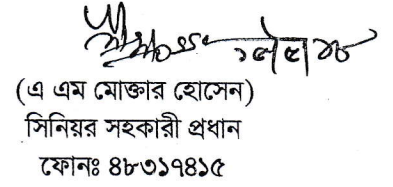 (এ এম মোক্তার হোসেন)
সিনিয়র সহকারী প্রধান
ফোনঃ ৪৮৩১৭৪১৫